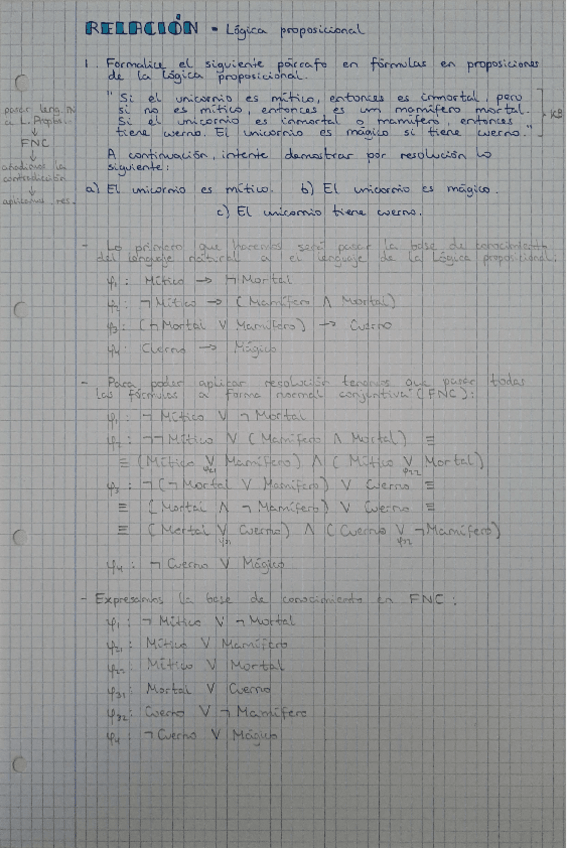 RELACIÓN - Lógica proposicional
1. Formalice el siguiente párrafo en fórmulas en proposiciones
de la Lógica proposicional.
"Si el unicornio es mítico, entonces es inmortal, pero
si no es mítico, entonces es un mamífero mortal.
Si el unicornio es inmortal o mamífero, entonces
tiene cuerno. El unicornio es mágico si tiene cuerno."
KB
pasar leng. n.
a L. Propos.
↓
FNC
↓
añadimos la
contradicción
↓
aplicamos res.
A continuación, intente demostrar por resolución lo
siguiente:
a) El unicornio es mítico. b) El unicornio es mágico.
c) El unicornio tiene cuerno.
- Lo primero que haremos será pasar la base de conocimiento
del lenguaje natural a el lenguaje de la Lógica proposicional:
φ₁: Mítico → ¬ Mortal
φ₂: ¬ Mítico → (Mamífero ∧ Mortal)
φ₃: (¬ Mortal ∨ Mamífero) → Cuerno
φ₄: Cuerno → Mágico
- Para poder aplicar resolución tenemos que pasar todas
las fórmulas a forma normal conjuntiva (FNC):
φ₁: ¬ Mítico ∨ ¬ Mortal
φ₂: ¬¬ Mítico ∨ (Mamífero ∧ Mortal) ≡
≡ (Mítico ∨ Mamífero) ∧ (Mítico ∨ Mortal)
φ₂₁ φ₂₂
φ₃: ¬(¬ Mortal ∨ Mamífero) ∨ Cuerno ≡
≡ (Mortal ∧ ¬ Mamífero) ∨ Cuerno ≡
≡ (Mortal ∨ Cuerno) ∧ (Cuerno ∨ ¬ Mamífero)
φ₃₁ φ₃₂
φ₄: ¬ Cuerno ∨ Mágico
- Expresamos la base de conocimiento en FNC:
φ₁: ¬ Mítico ∨ ¬ Mortal
φ₂₁: Mítico ∨ Mamífero
φ₂₂: Mítico ∨ Mortal
φ₃₁: Mortal ∨ Cuerno
φ₃₂: Cuerno ∨ ¬ Mamífero
φ₄: ¬ Cuerno ∨ Mágico